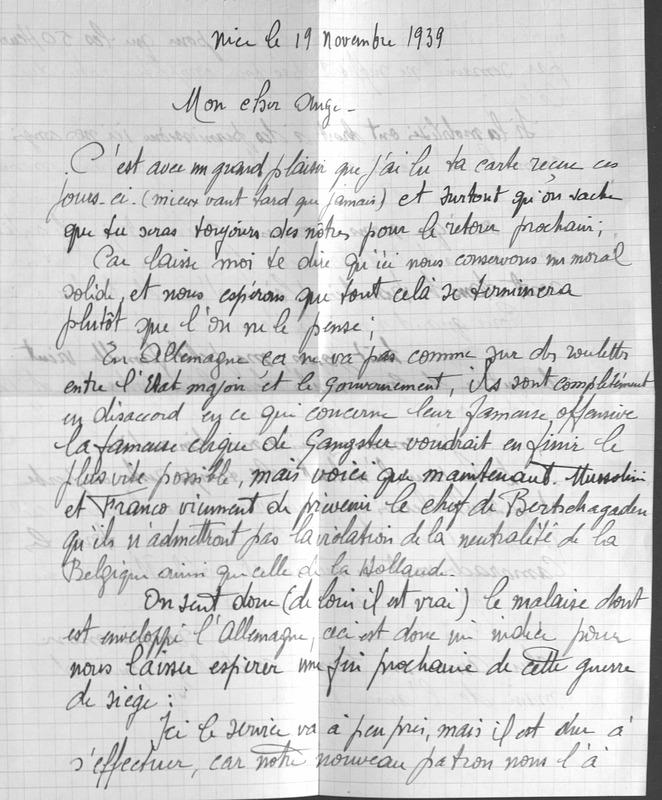 Nice le 19 novembre 1939
Mon cher Ange -
C'est avec un grand plaisir que j'ai lu ta carte reçue ces
jours-ci. (mieux vaut tard que jamais) et surtout qu'on sache
que tu seras toujours des nôtres, pour le retour prochain ;
Car laisse moi te dire qu'ici nous conservons un moral
solide, et nous espérons que tout celà se terminera
plutôt que l'on ne le pense ;
En Allemagne ça ne va pas comme sur des roulettes
entre l'Etat major et le Gouvernement, ils sont complètement
en disaccord en ce qui concerne leur fameuse offensive
la fameuse clique de Gangster voudrait en finir le
plus vite possible, mais voici que maintenant. Mussolini
et Franco viennent de prévenir le chef de Bertschagaden
qu'ils n'admettront pas la violation de la neutralité de la
Belgique ainsi que celle de la Hollande.
On sent donc (de loin il est vrai) le malaise dont
est enveloppé l'Allemagne, ceci est donc un indice pour
nous laisser espérer une fin prochaine de cette guerre
de siège :
Ici le service va à peu près, mais il est dur à
s'effectuer, car notre nouveau patron nous l'à